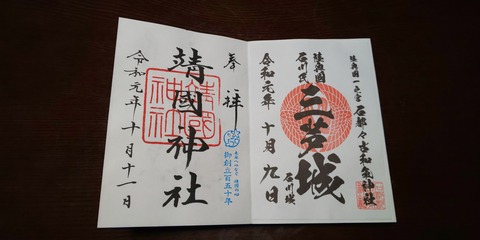 陸奥國一之宮 石都々古和氣神社
陸奥國
石川氏
三芦城
石川城
令和元年 十月 九日
奉拝
靖國神社
御創立百五十年
令和元年十月十一日